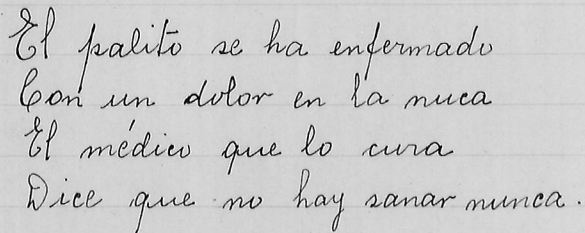 El palito se ha enfermado
Con un dolor en la nuca
El médico que lo cura
Dice que no hay sanar nunca.